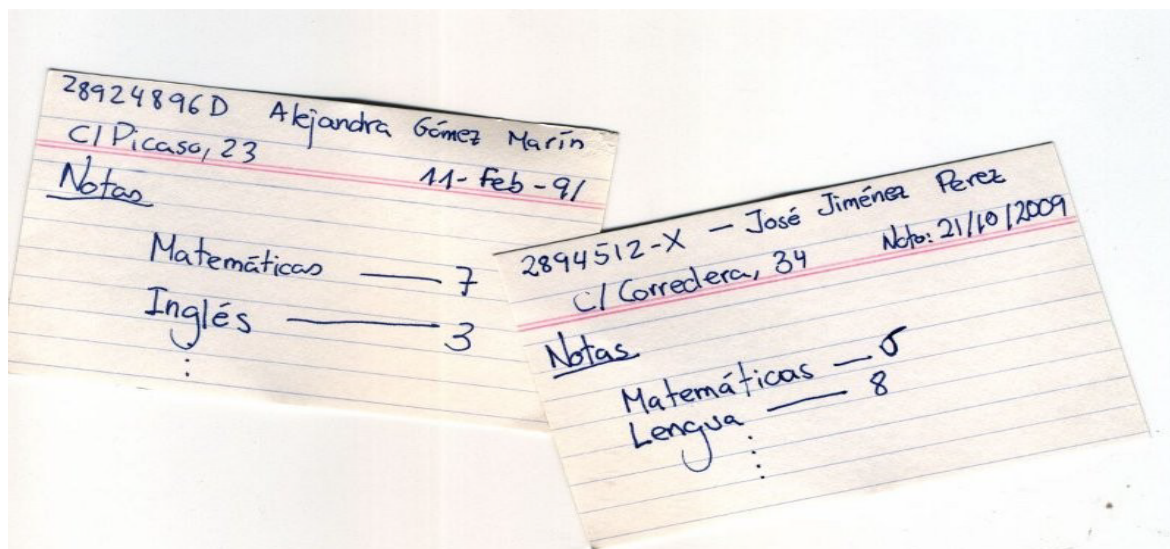 28924896D Alejandra Gómez Marín
C/ Picaso, 23
11-Feb-91
Notas
Matemáticas — 7
Inglés — 3
⋮
2894512-X — José Jiménez Perez
C/ Corredera, 34 Nato: 21/10/2009
Notas
Matemáticas — 5
Lengua — 8
⋮